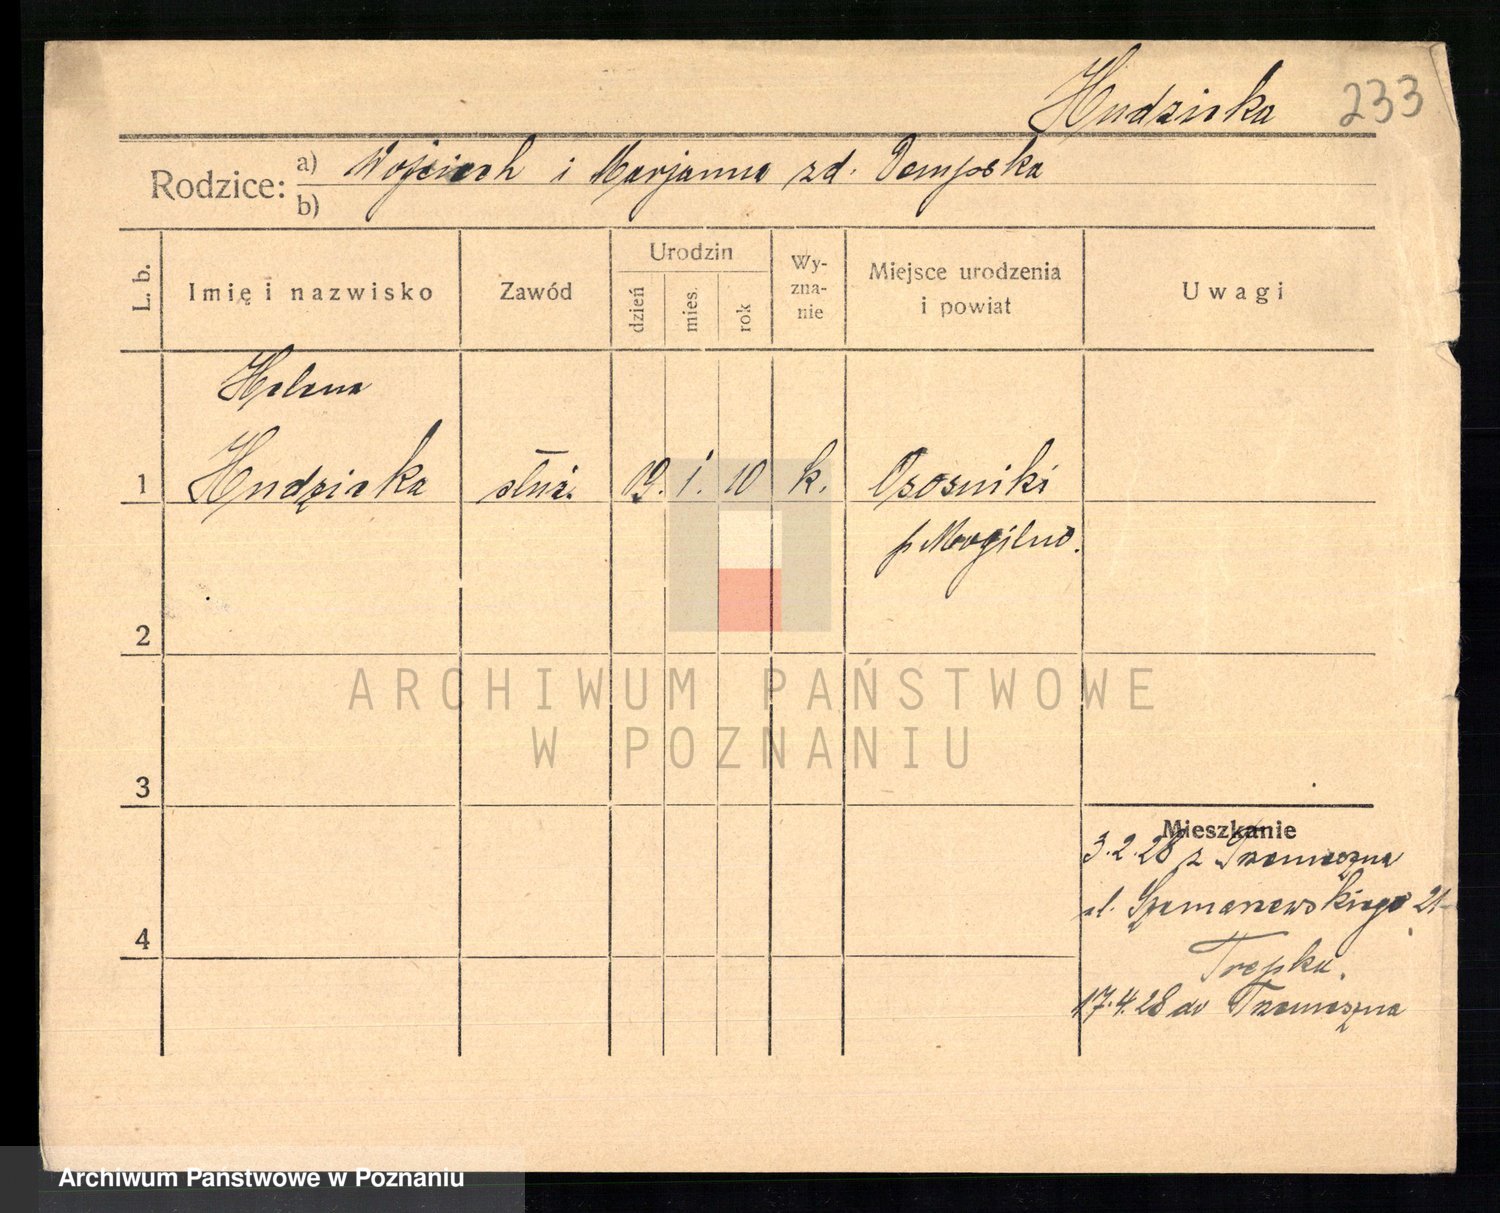 Hudzicka 233
Rodzice: a) Wojciech i Marjanna zd. Dempska
b)
L. b.
Imię i nazwisko
Zawód
Urodzin
dzień
mies.
rok
Wy-
zna-
nie
Miejsce urodzenia
i powiat
Uwagi
Helena
1 Hudzicka służ. 19. 1. 10 k. Ososniki
p Mogilno.
2
3
4
Mieszkanie
3.2.28 z Trzemeszna
ul. 21
17.4.28 do Trzemeszna
ARCHIWUM PAŃSTWOWE
W POZNANIU
Archiwum Państwowe w Poznaniu